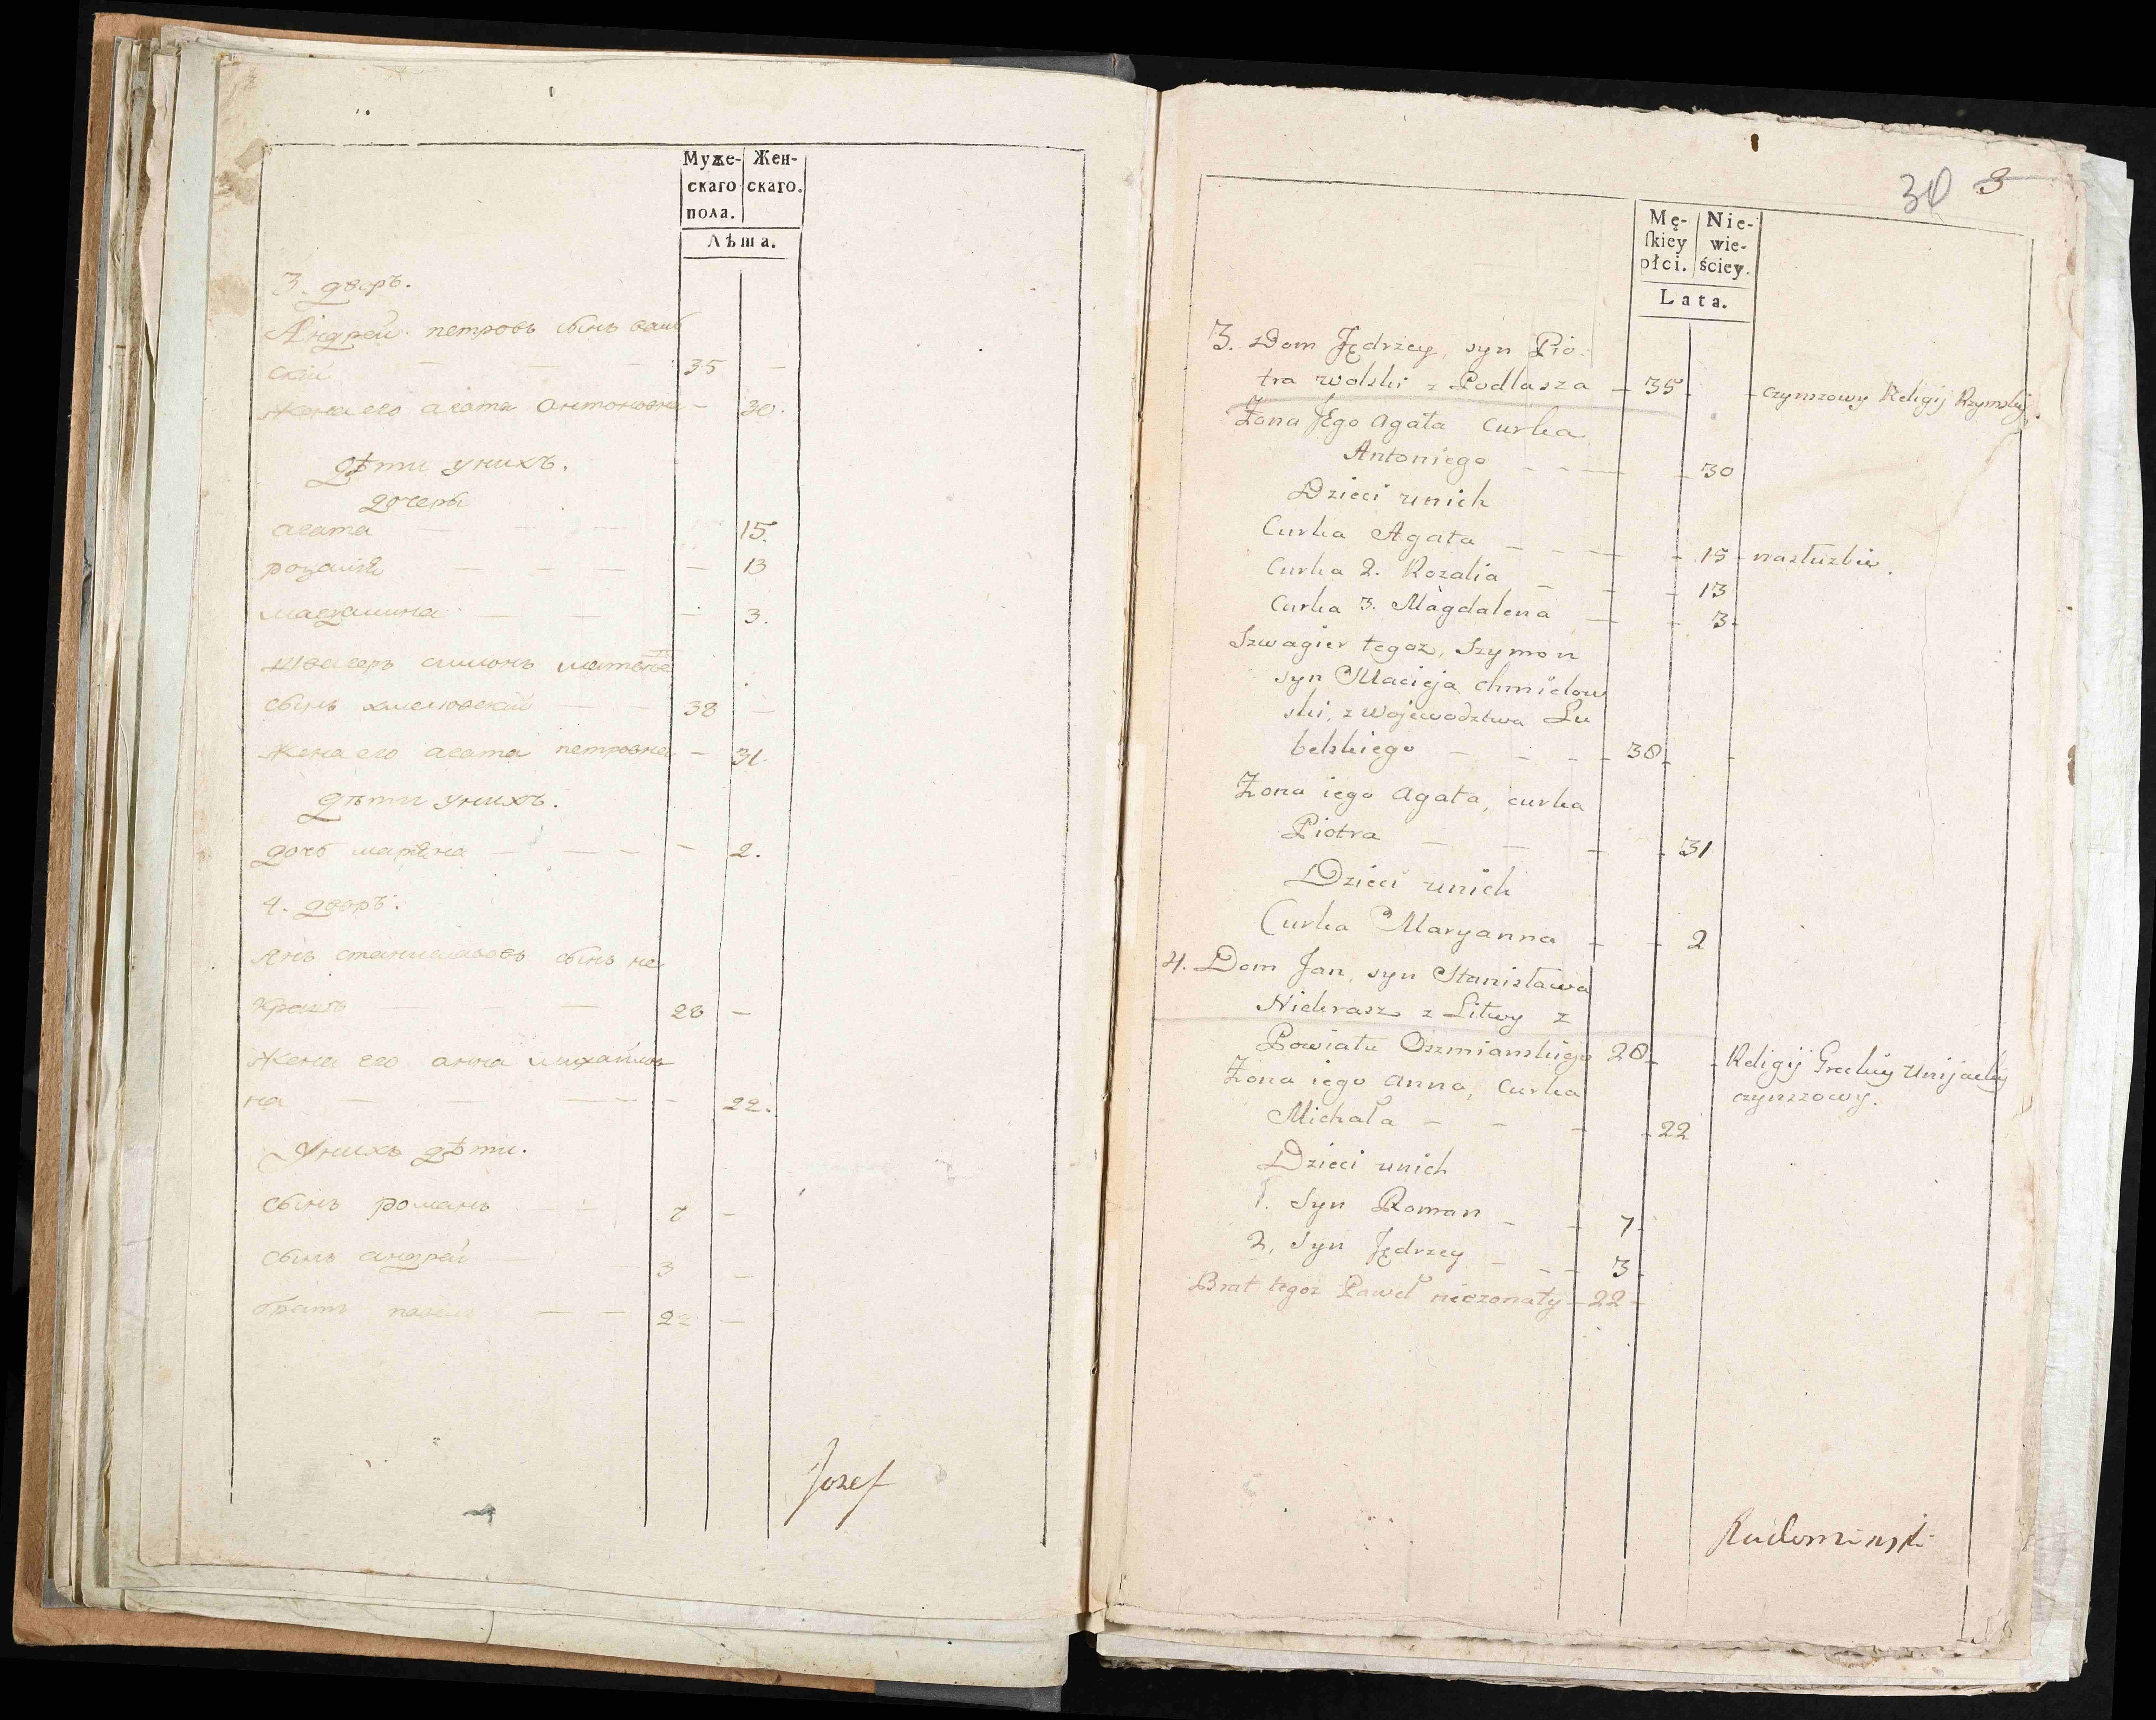 Муже-
скаго
пола.
Жен-
скаго.
Лѣта.
3. дворъ.
Андрей петровъ сынъ воль
ский — — 35 —
жена его агата антоновна — 30.
дѣти унихъ.
дочери
агата — — — 15.
розалия — — — — 13
магдалина — — — 3.
швагеръ симонъ матвѣе
сынъ хмелювский — — 38 —
жена его агата петровна — 31.
дѣти унихъ.
дочь марияна — — — — 2.
4. дворъ.
янъ станиславовъ сынъ не
крашъ — — — 28 —
жена его анна михайлов
на — — — — 22.
Унихъ дѣти.
сынъ романъ — — 7 —
сынъ андрей — 3 —
братъ павелъ — — 22 —
Jozef
30 3
Mę-
ſkiey
płci.
Nie-
wie-
ściey.
Lata.
3. Dom Jędrzey, syn Pio-
tra wolski z Podlasza — 35 — czynszowy Religij Rzymskiy.
Żona Jego Agata Curka
Antoniego — — — 30
Dzieci unich
Curka Agata — — — 15 — nasłużbie.
Curka 2. Rozalia — — — 13
Curka 3. Magdalena — — 3
Szwagier tegoz, Szymon
syn Macieja chmielow
ski, z Wojewodztwa Lu
belskiego — — — — 38
Żona iego Agata, curka
Piotra — — — — 31
Dzieci unich
Curka Maryanna — — 2
4. Dom Jan, syn Stanisława
Niekrasz z Litwy z
Powiatu Oszmianskiego 28 — Religij Greckiy Unijackiy
czynszowy.
Żona iego Anna, Curka
Michała — — — — 22
Dzieci unich
1. Syn Roman — — 7
2, Syn Jędrzey — — — 3
Brat tegoz Paweł nieżonaty — 22 —
Rudominski